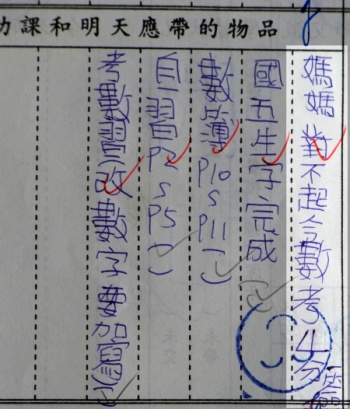 功課和明天應帶的物品
媽媽對不起今數考4分
國五生字完成( )
數簿P10~P11( )
自習P2~P5( )
考數習改數字要加圈( )